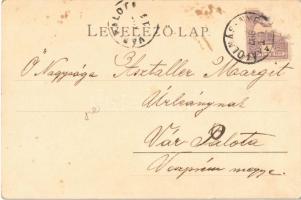 LEVELEZŐ-LAP.
Ő Nagysága Asztaller Margit
Úrleánynak
Vár Palota
Veszprém megye.